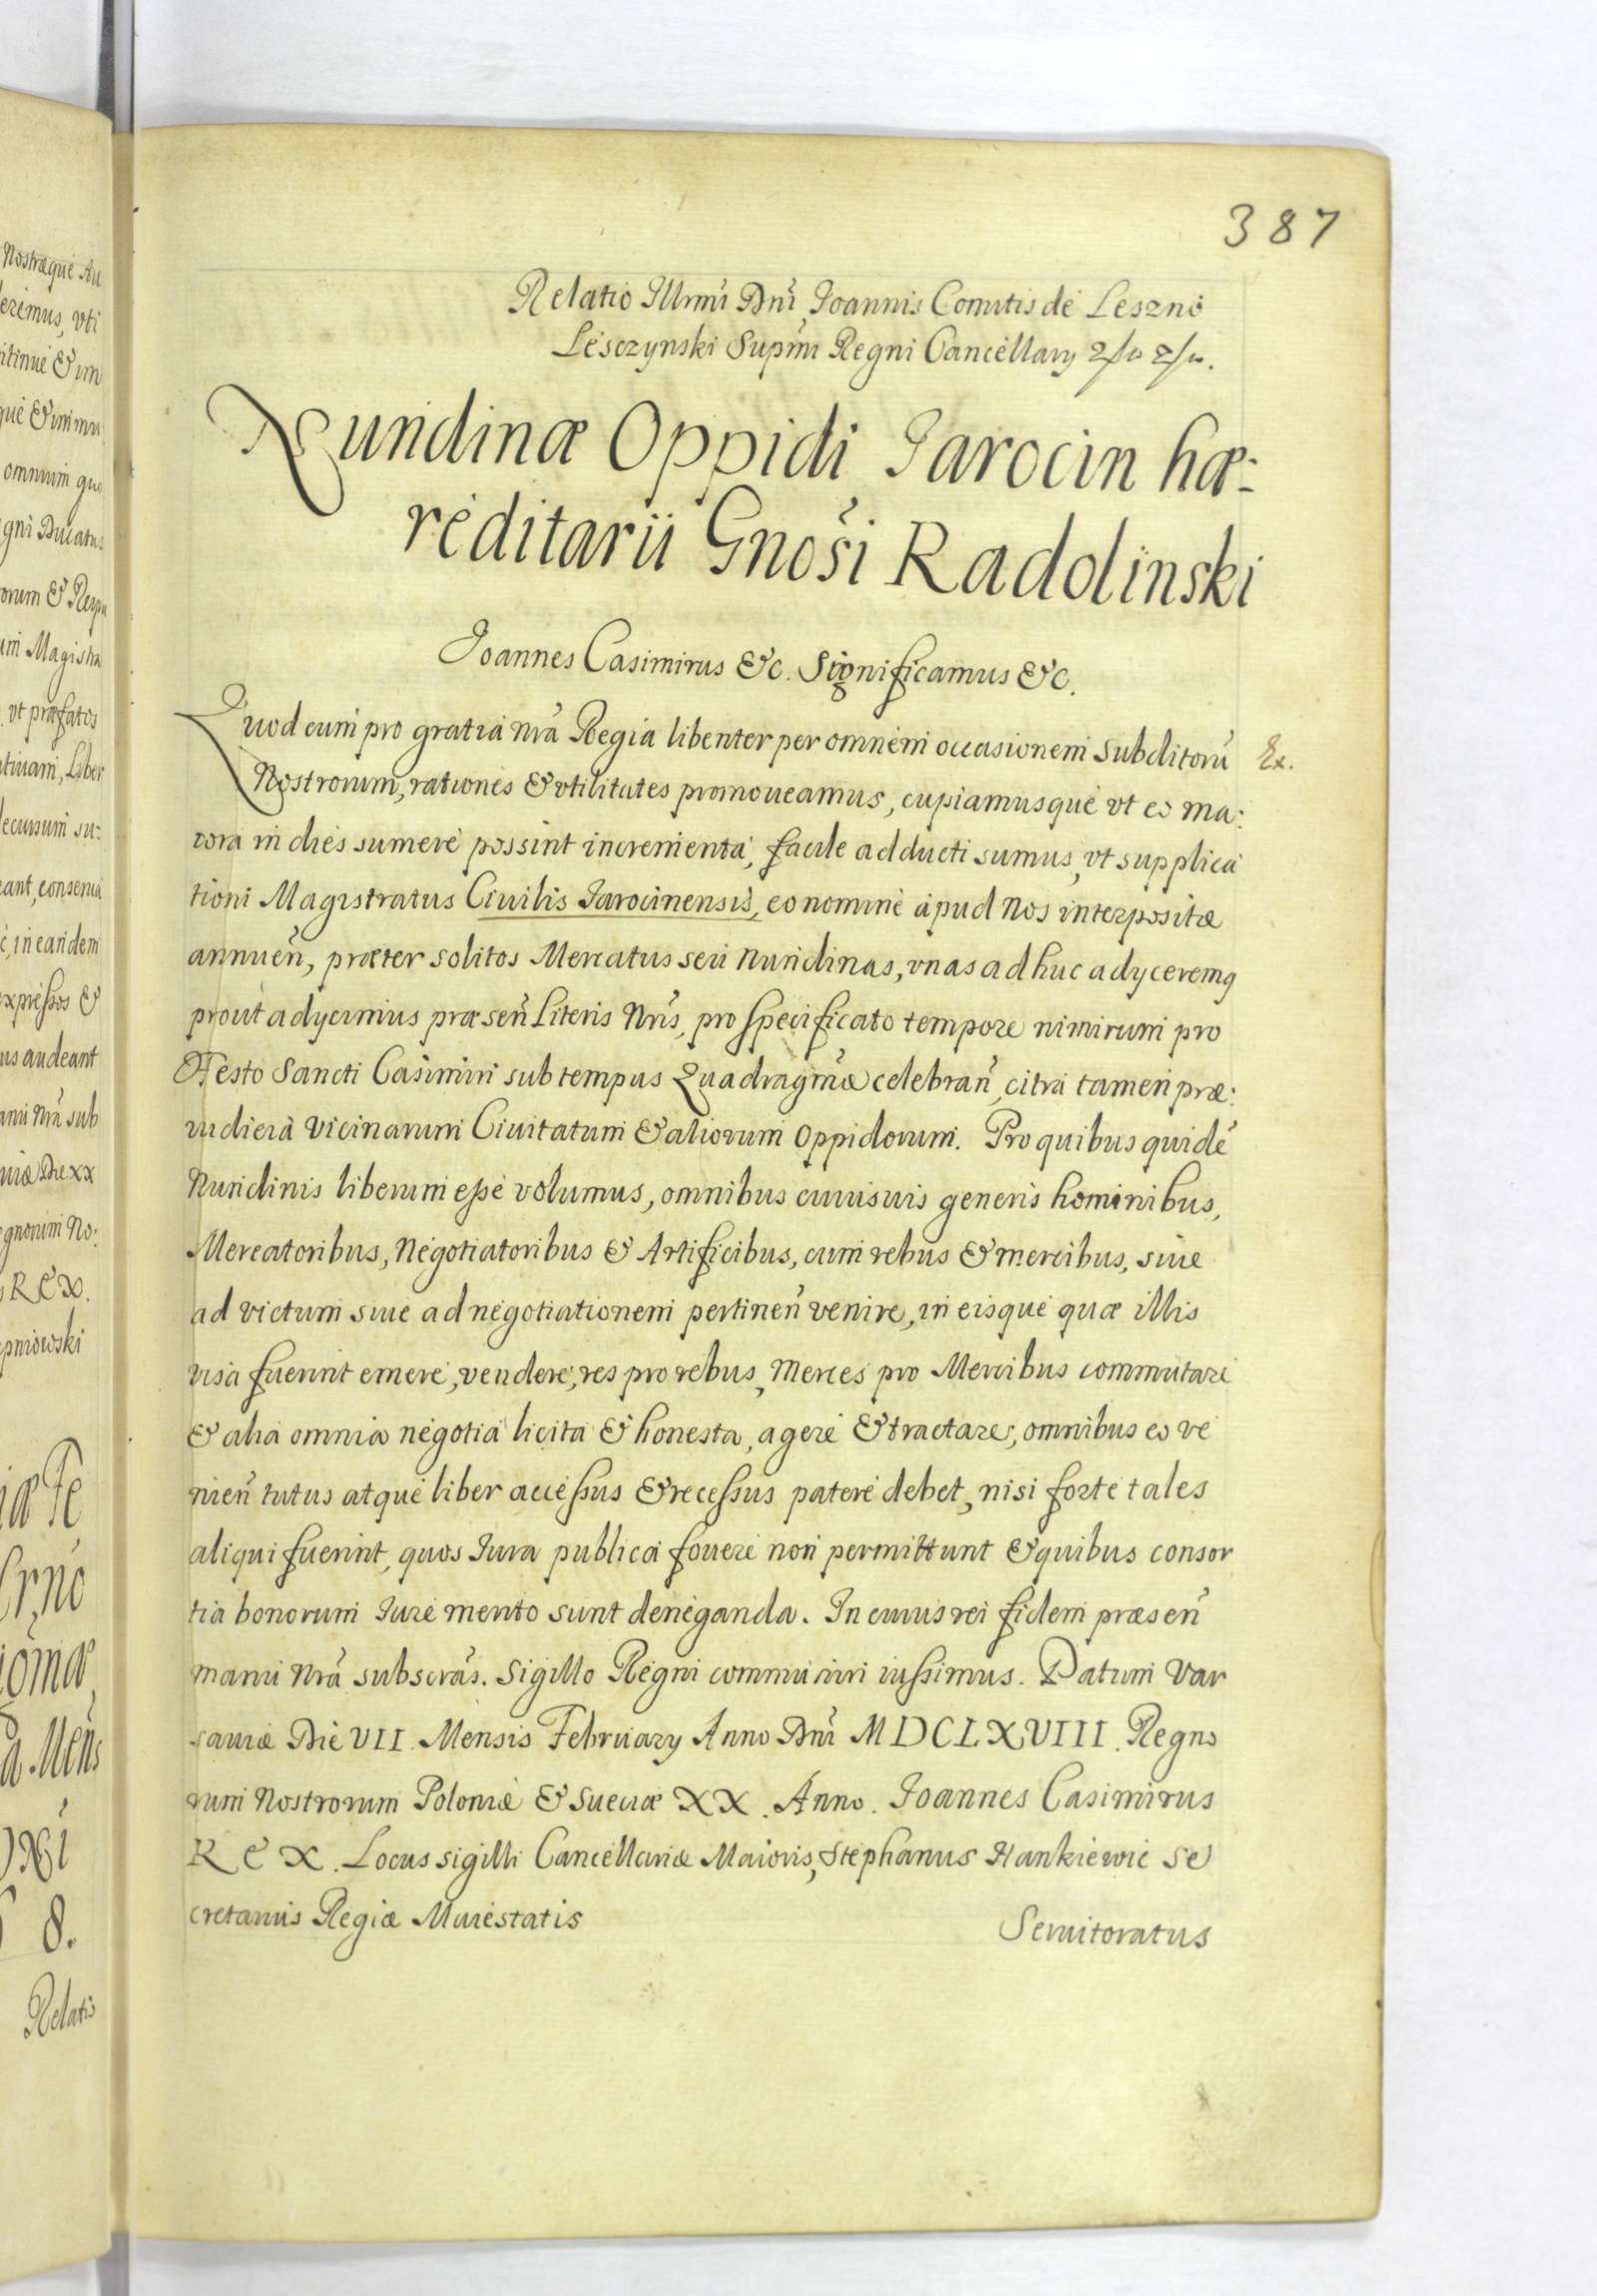 387
Relatio Illrmi Dni Joannis Comitis de Leszno
Lesczynski Suprmi Regni Cancellarij
Nundinæ Oppidi Jarocin hæ:
reditarii Gnosi Radolinski
Joannes Casimirus &c. Significamus &c.
Quod cum pro gratia nrã Regia libenter per omnem occasionem subditorũ
Ex.
Nostrorum, rationes & vtilitates promoueamus, cupiamusque vt eo ma:
iora in dies sumere possint incrementa, facile adducti sumus, vt supplica
tioni Magistratus Ciuilis Jarocinensis, eo nomine apud Nos interpositæ
annuen̄, præter solitos Mercatus seu Nundinas, vnas adhuc adijceremq
prout adijcimus præsen̄ Literis Nr̃is, pro specificato tempore nimirum pro
Festo Sancti Casimiri sub tempus Quadragm̃æ celebran̄, citra tamen præ:
iudicia vicinarum Ciuitatum & aliorum Oppidorum. Pro quibus quidẽ
Nundinis liberum esse volumus, omnibus cuiusuis generis hominibus,
Mercatoribus, Negotiatoribus & Artificibus, cum rebus & mercibus, siue
ad victum siue ad negotiationem pertinen̄ venire, in eisque quæ illis
visa fuerint emere, vendere, res pro rebus, Merces pro Mercibus commutare
& alia omnia negotia licita & honesta, agere & tractare, omnibus eo ve
nien̄ tutus atque liber accessus & recessus patere debet, nisi forte tales
aliqui fuerint, quos Jura publica fouere non permittunt & quibus consor
tia bonorum Jure merito sunt deneganda. In cuius rei fidem præsen̄
manu Nrã subscrãs. Sigillo Regni communiri iussimus. Datum Var
sauiæ Die VII. Mensis February Anno Dni MDCLXVIII. Regno
rum Nostrorum Poloniæ & Sueciæ XX. Anno. Joannes Casimirus
REX. Locus sigilli Cancellariæ Maioris, Stephanus Hankiewic Se
cretarius Regiæ Maiestatis
Seruitoratus